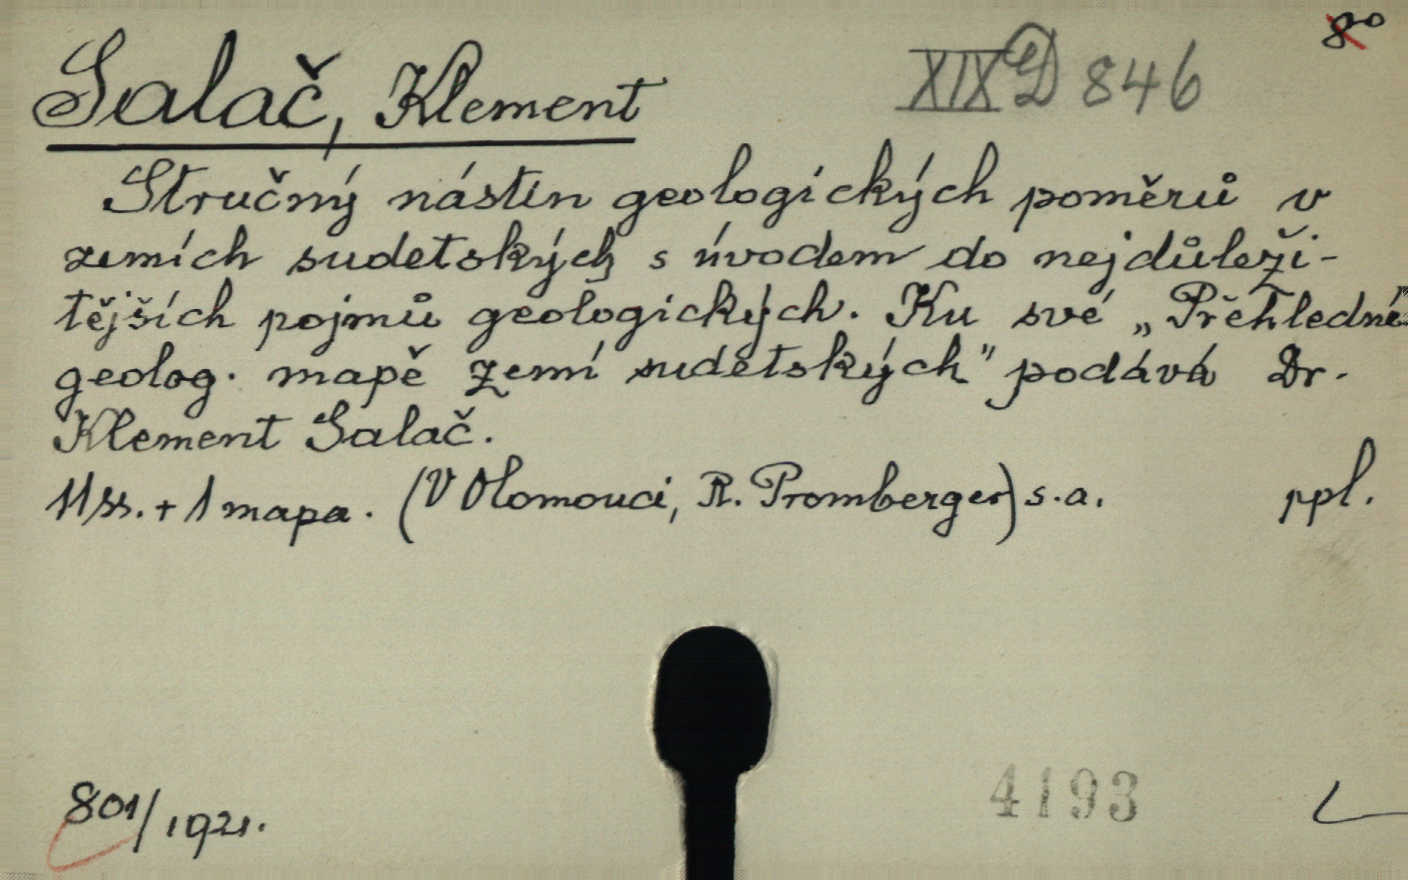 8°
Salač, Klement
XIX D 846
Stručný nástin geologických poměrů v
zemích sudetských s úvodem do nejdůleži-
tějších pojmů geologických. Ku své „Přehledné
geolog. mapě zemí sudetských" podává Dr.
Klement Salač.
11 ss. + 1 mapa. (V Olomouci, R. Promberger) s. a. ppl.
801/1921.
4193